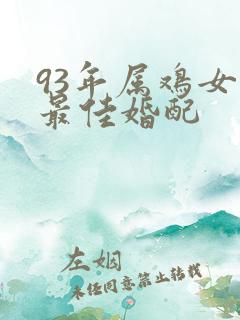 93年属鸡女
最佳婚配
左姻
未经同意禁止转载